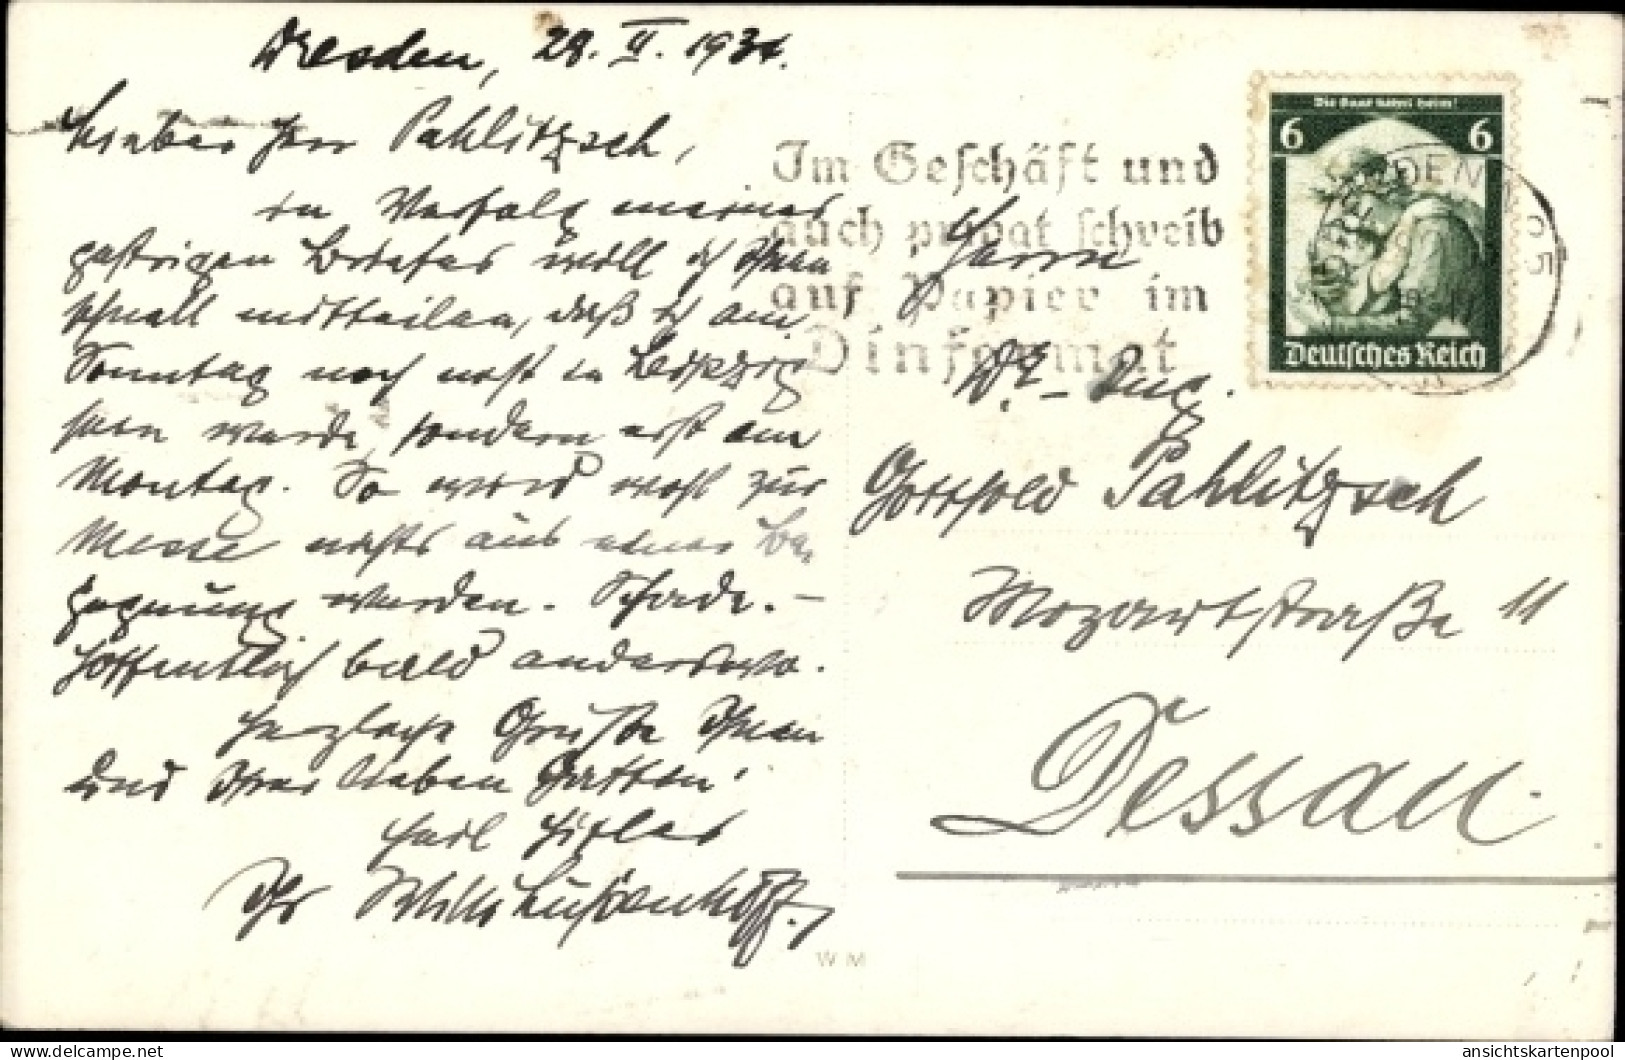 Dresden, 28. II. 1935.
Lieber Herr Pahlitzsch,
in Verfolg meines
gestrigen Briefes will ich Ihnen
schnell mitteilen, daß ich am
Sonntag noch nicht in Leipzig
sein werde, sondern erst am
Montag. So wird wohl zur
Messe nichts aus einer Be-
gegnung werden. Schade. –
Hoffentlich bald anderswo.
Herzliche Grüße Ihnen
und Ihrer lieben Gattin!
Heil Hitler
Ihr
W M
Im Geschäft und
auch privat schreib
auf Papier im
Dinformat
Die Saar kehrt heim!
6 6
Deutsches Reich
Herrn
Dr. - Ing.
Gotthold Pahlitzsch
Mozartstraße 11
Dessau.
www.delcampe.net
ansichtskartenpool